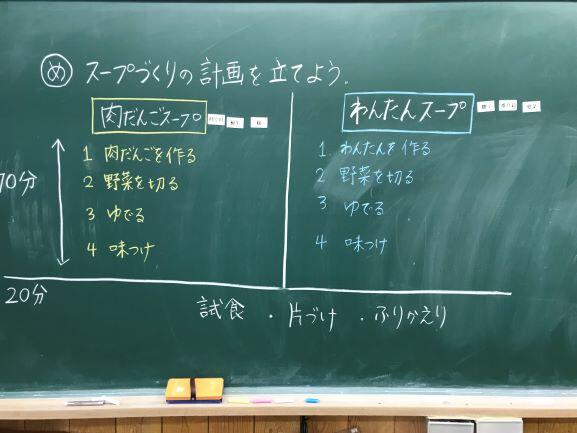 め スープづくりの計画を立てよう。
肉だんごスープ
1 肉だんごを作る
2 野菜を切る
3 ゆでる
4 味つけ
わんたんスープ
1 わんたんを作る
2 野菜を切る
3 ゆでる
4 味つけ
70分
20分
試食 ・片づけ ・ふりかえり